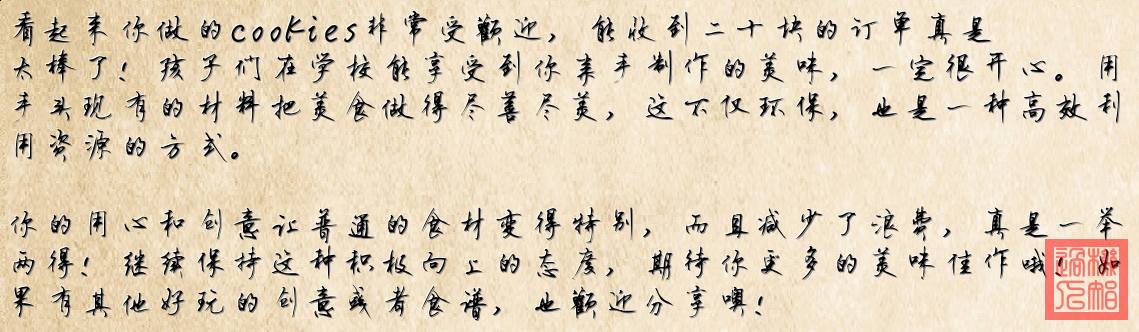 看起来你做的cookies非常受歡迎，能收到二十块的订单真是
太棒了！孩子们在学校能享受到你亲手制作的美味，一定很开心。用
手头现有的材料把美食做得尽善尽美，这不仅环保，也是一种高效利
用资源的方式。
你的用心和创意让普通的食材变得特别，而且减少了浪费，真是一举
两得！继续保持这种积极向上的态度，期待你更多的美味佳作哦！如
果有其他好玩的创意或者食谱，也歡迎分享噢！